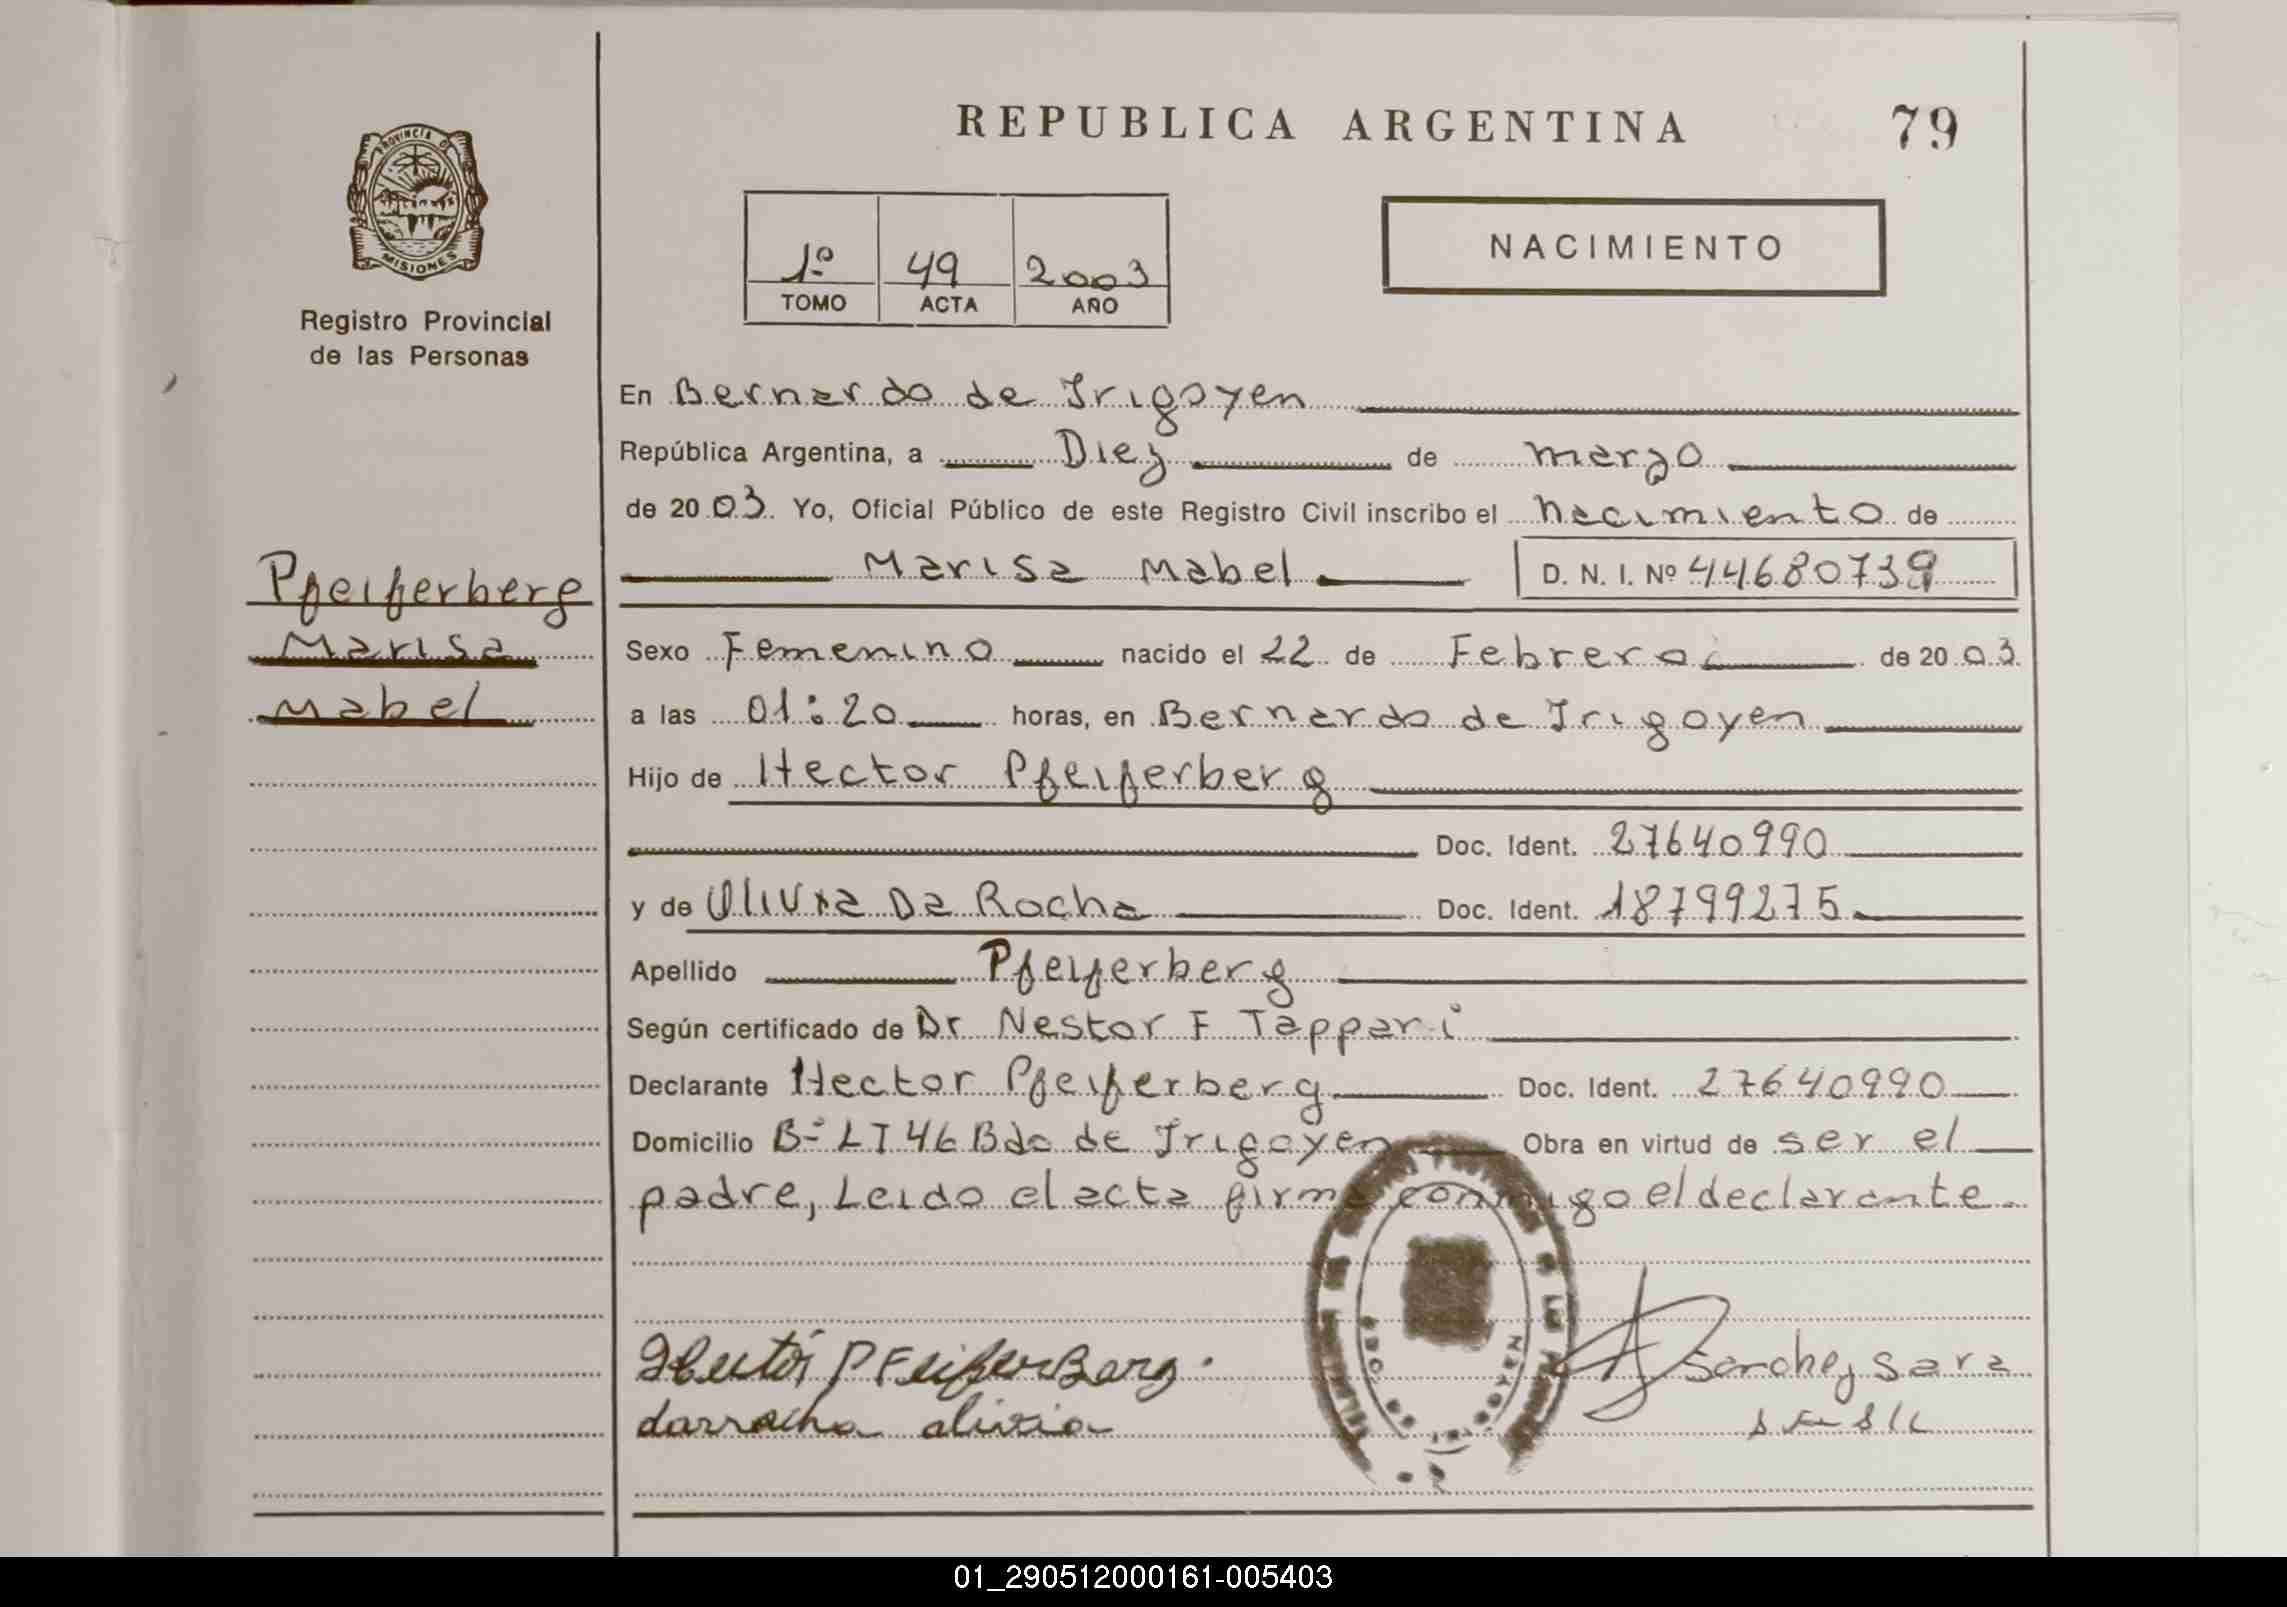 REPUBLICA ARGENTINA
79
PROVINCIA DE
MISIONES
Registro Provincial
de las Personas
1º 49 2003
TOMO ACTA AÑO
NACIMIENTO
En Bernardo de Irigoyen
República Argentina, a Diez de marzo
de 2003. Yo, Oficial Público de este Registro Civil inscribo el nacimiento de
Marisa Mabel D. N. I. Nº 44680739
Pfeiferberg
Marisa
Mabel
Sexo Femenino nacido el 22 de Febrero de 2003
a las 01:20 horas, en Bernardo de Irigoyen
Hijo de Hector Pfeiferberg
Doc. Ident. 27640990
y de Olivia Da Rocha Doc. Ident. 18799275
Apellido Pfeiferberg
Según certificado de Dr Nestor F Tappari
Declarante Hector Pfeiferberg Doc. Ident. 27640990
Domicilio Bº LT 46 Bdo de Irigoyen Obra en virtud de ser el
padre, Leido el acta firma conmigo el declarante
Hector PFeiferBerg.
darracha olivia
Sanchez Sara
01_290512000161-005403